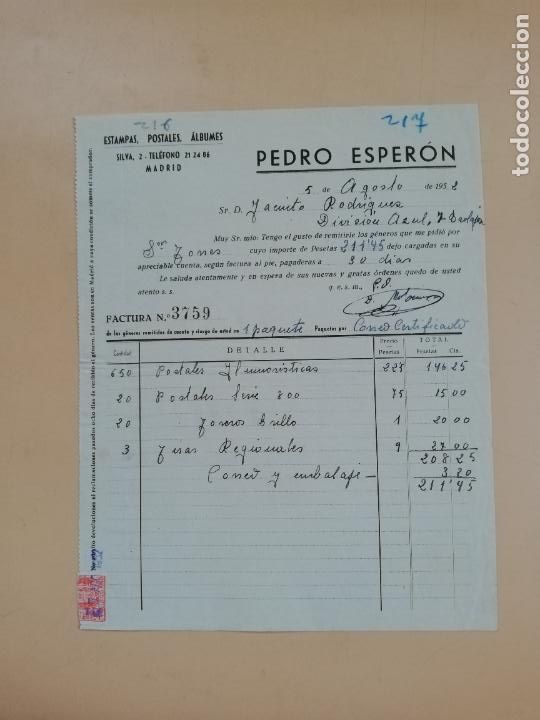 216
217
ESTAMPAS, POSTALES, ÁLBUMES
SILVA, 2 - TELÉFONO 21 24 86
MADRID
PEDRO ESPERÓN
5 de Agosto de 1952
Sr. D. Jacinto Rodriguez
División Azul, 7 Badajoz
Muy Sr. mío: Tengo el gusto de remitirle los géneros que me pidió por
cuyo importe de Pesetas 211'45 dejo cargadas en su
apreciable cuenta, según factura al pie, pagaderas a 30 dias
Le saluda atentamente y en espera de sus nuevas y gratas órdenes quedo de usted
atento s. s. q. e. s. m., P.O.
FACTURA N.º 3759
de los géneros remitidos de cuenta y riesgo de usted en 1 paquete Paquetes por Correo Certificado
Cantidad DETALLE Precio Pesetas TOTAL Pesetas Cts.
650 Postales Humorísticas 225 146 25
20 Postales Serie 800 75 15 00
20 Toreros brillo 1 20 00
3 Tiras Regionales 9 27 00
208 25
Correo y embalaje — 3 20
211'45
No admito devoluciones ni reclamaciones pasados ocho días de recibido el género. Las ventas son en Madrid a cuya condición se somete el comprador.
todocoleccion.net